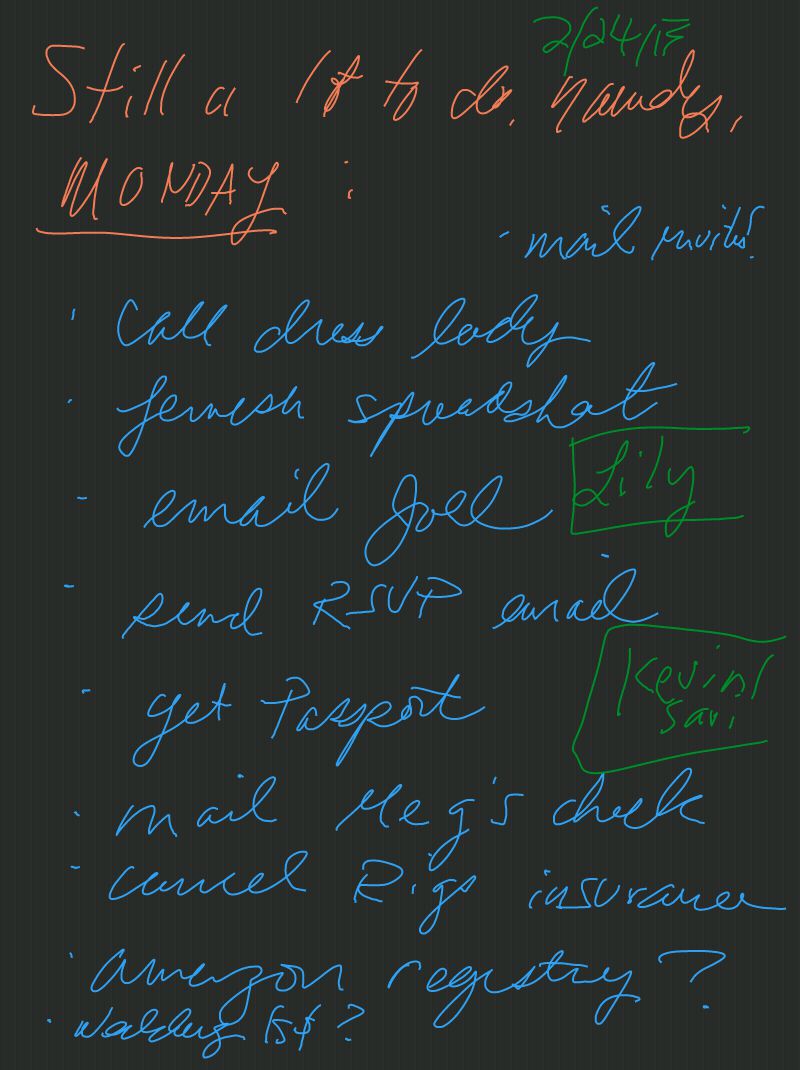 2/24/15
Still a lot to do, namely,
MONDAY :
- mail invites!
- call dress lady
- finish spreadsheet
- email Joel
Lily
- send RSVP email
Kevin/
Sav,
- get Passport
- mail Meg's check
- cancel Rigs insurance
- amazon registry?
- wedding list?